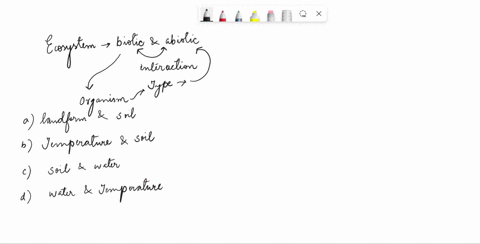 Ecosystem → biotic & abiotic
interaction
Type →
Organism
a) landform & soil
b) Temperature & soil
c) soil & water
d) water & Temperature